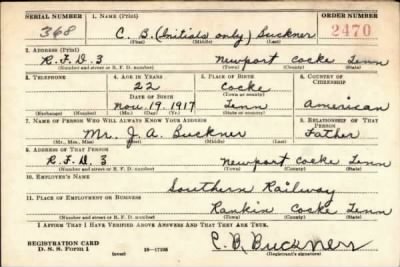 SERIAL NUMBER 1. NAME (Print) ORDER NUMBER
368 C. B. (Initials only) Buckner 2470
(First) (Middle) (Last)
2. ADDRESS (Print)
R.F.D. 3 Newport Cocke Tenn
(Number and street or R. F. D. number) (Town) (County) (State)
3. TELEPHONE 4. AGE IN YEARS 5. PLACE OF BIRTH 6. COUNTRY OF CITIZENSHIP
22 Cocke
DATE OF BIRTH (Town or county)
Nov. 19. 1917 Tenn American
(Exchange) (Number) (Mo.) (Day) (Yr.) (State or country)
7. NAME OF PERSON WHO WILL ALWAYS KNOW YOUR ADDRESS 8. RELATIONSHIP OF THAT PERSON
Mr. J. A. Buckner Father
(Mr., Mrs., Miss) (First) (Middle) (Last)
9. ADDRESS OF THAT PERSON
R.F.D. 3 Newport Cocke Tenn
(Number and street or R. F. D. number) (Town) (County) (State)
10. EMPLOYER'S NAME
Southern Railway
11. PLACE OF EMPLOYMENT OR BUSINESS
Rankin Cocke Tenn
(Number and street or R. F. D. number) (Town) (County) (State)
I AFFIRM THAT I HAVE VERIFIED ABOVE ANSWERS AND THAT THEY ARE TRUE.
REGISTRATION CARD
D. S. S. Form 1 (over) 16—17105 C. B. Buckner
(Registrant's signature)